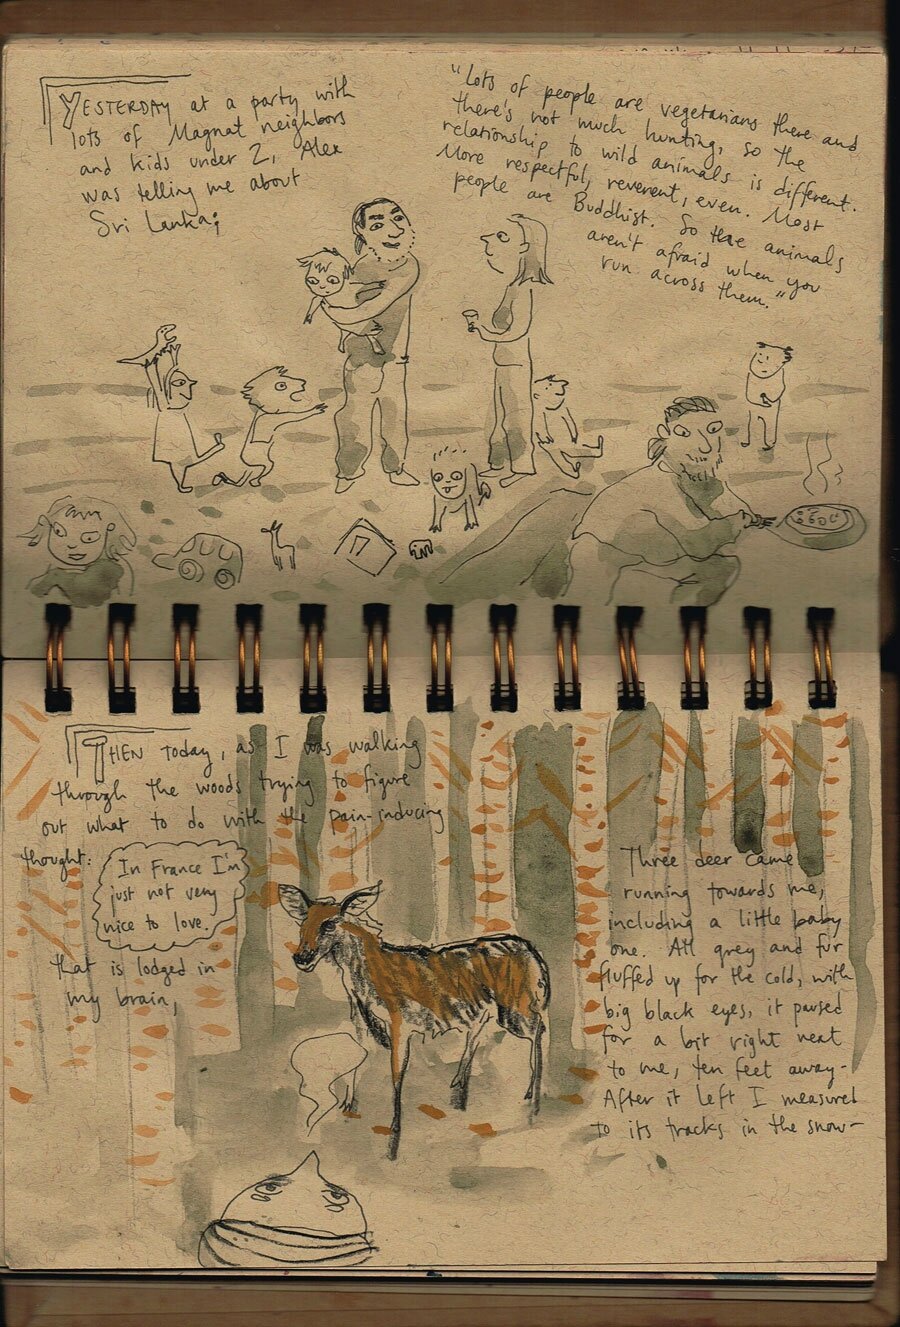 YESTERDAY at a party with
lots of Magnat neighbors
and kids under 2, Alex
was telling me about
Sri Lanka;
"Lots of people are vegetarians there and
there's not much hunting, so the
relationship to wild animals is different.
More respectful, reverent, even. Most
people are Buddhist. So the animals
aren't afraid when you
run across them."
THEN today, as I was walking
through the woods trying to figure
out what to do with the pain-inducing
thought:
In France I'm
just not very
nice to love.
that is lodged in
my brain,
Three deer came
running towards me,
including a little baby
one. All grey and fur
fluffed up for the cold, with
big black eyes, it paused
for a bit right next
to me, ten feet away-
After it left I measured
to its tracks in the snow-